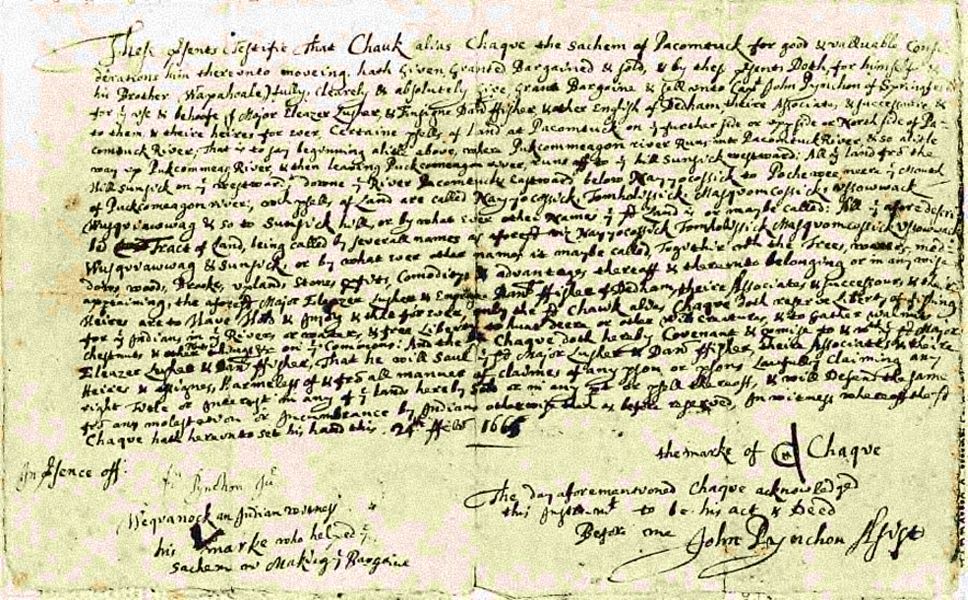 These psents Testifie That Chauk alias Chaque the sachem of Pacomtuck for good & valluable Consi
derations him thereunto moveing hath Given Granted Bargained & sold, & by thes psents Doth, for himself &
his Brother Wapahoale, fully, clearly & absolutely Give Grant Bargaine & sell unto Capt John Pynchon of Springfeild
for ye use & behoofe of Major Eleazer Lusher, & Ensigne Danll ffisher & other English of Dedham theire Associats, & successours, &
to them, & theire heires for ever, Certaine psells of land at Pacomtuck on ye further side or upp side or North side of Pa-
comtuck River, That is to say beginning alitle above, where Puckcommeagon river Runs into Pacomtuck River, & so alitle
way up Puckcommeag River, & then leaving Puckcomeagon river, runs off to ye hill Sunsick westward: All ye land fro the
Hill Sunsick on ye westward downe ye River Pacomtuck Eastward below Nayyocossick to Pochewee neere ye Mouth
of Puckcomeagon river; wch psells of Land are called Nayyocossick, Tomholissick, Masquomcossick, Ussowwack
Wusquiawwag & so to Sunsick hill, or by what ever other Names ye sd land is or maybe called: All ye afore descri
bed Tract of land, being called by severall names as aforesd viz Nayyocossick Tomholissick Masquomcossick Ussowwack
Wusquiawwag & Sunsick, or by what ever other names it maybe called, Together with the Trees, waters, mea-
dows, woods, Brookes, uplands, Stones, Comodityes & advantages thereoff & thereunto belonging or in any wise
appertaining, the aforesd Major Eleazer Lusher & Ensigne Danll ffisher of Dedham, theire Associates & successours, & their
Heires are to Have, Hold & Injoy & that for ever, only the sd Chauk alias Chaque Doth reserve Liberty of fishing
for ye Indians in ye Rivers, or waters, & free Liberty to hunt deere, or other wild creatures, & to Gather walnuts
chestnuts & other on ye Commons: And the sd Chaque doth hereby Covenant & pmise to & with ye sd Major
Eleazer Lusher & Danll ffisher, That he will Save ye sd Major Lusher & Danll ffisher, theire Associates & theire
Heires & assignes, Harmeless of & fro all manner of claimes of any pson or psons Lawfully Claiming any
right Title or Interest in any of ye land hereby sold or in any pt or psell thereoff, & will Defend the same
fro any molestation or Incumbrance by Indians otherwise then as before reserved, In witness whereoff the sd
Chaque hath hereunto set his hand this . 24th ffebr 1666
the marke of Chaque
In psence off:
Jn Pynchon Ju
Wequanock an Indian wittness
his marke who helped ye
sachem in Making ye Bargaine
The day aforementioned Chaque acknowledged
this Instrumt to be his act & Deed
Before me John Pynchon Assist